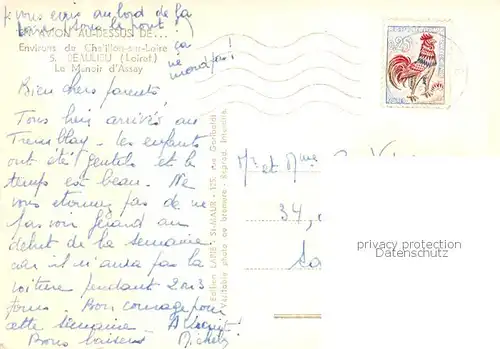 je vous écris au bord de la
Loire, sous le pont !
ça
ne mord pas !
EN AVION AU-DESSUS DE...
Environs de Châtillon-sur-Loire
5. BEAULIEU (Loiret)
Le Manoir d'Assay
0,25
Bien chers parents
Tous bien arrivés au
Tremblay. les enfants
ont été gentils et le
temps est beau. Ne
vous étonnez pas de ne
pas voir Gérard au
début de la semaine
car il n'aura pas la
voiture pendant 2 ou 3
jours. Bon courage pour
cette semaine.
Bons baisers Michel
Edition LAPIE - St-MAUR - 123, rue Garibaldi
Véritable photo au bromure - Reprod. Interdite
Mr et Mme
34,
privacy protection